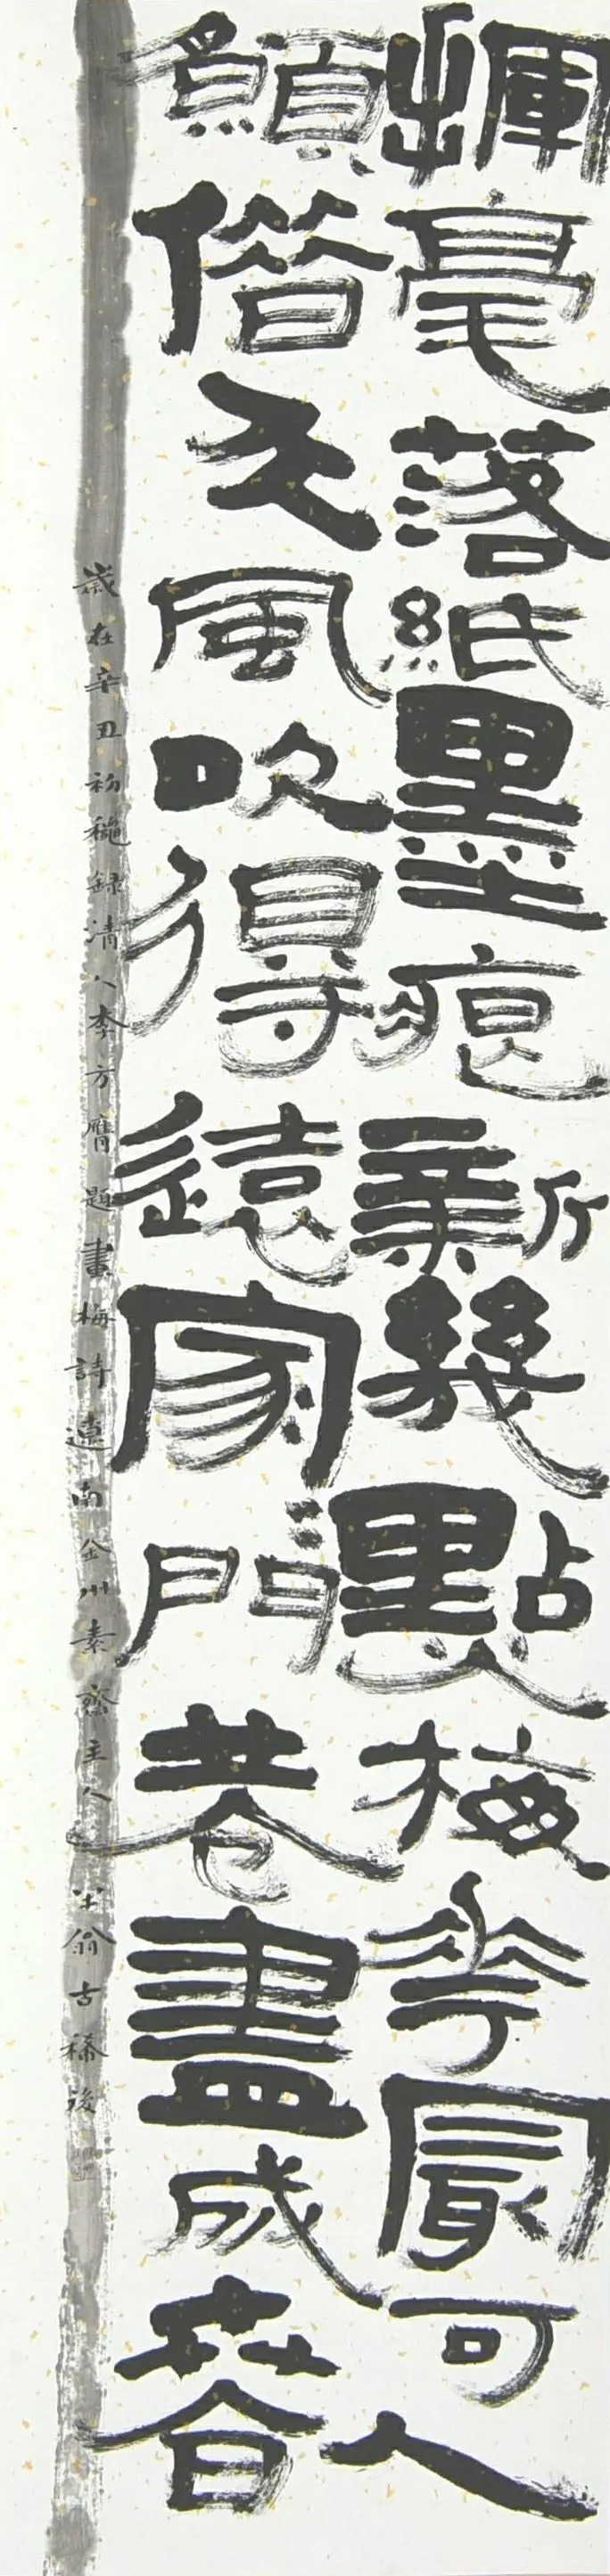 揮毫落紙墨痕新幾點梅花最可人
願借天風吹得遠家〻門巷盡成春
歲在辛丑初龝錄清人李方膺題畫梅詩遼南金州素齋主人翁古稀後